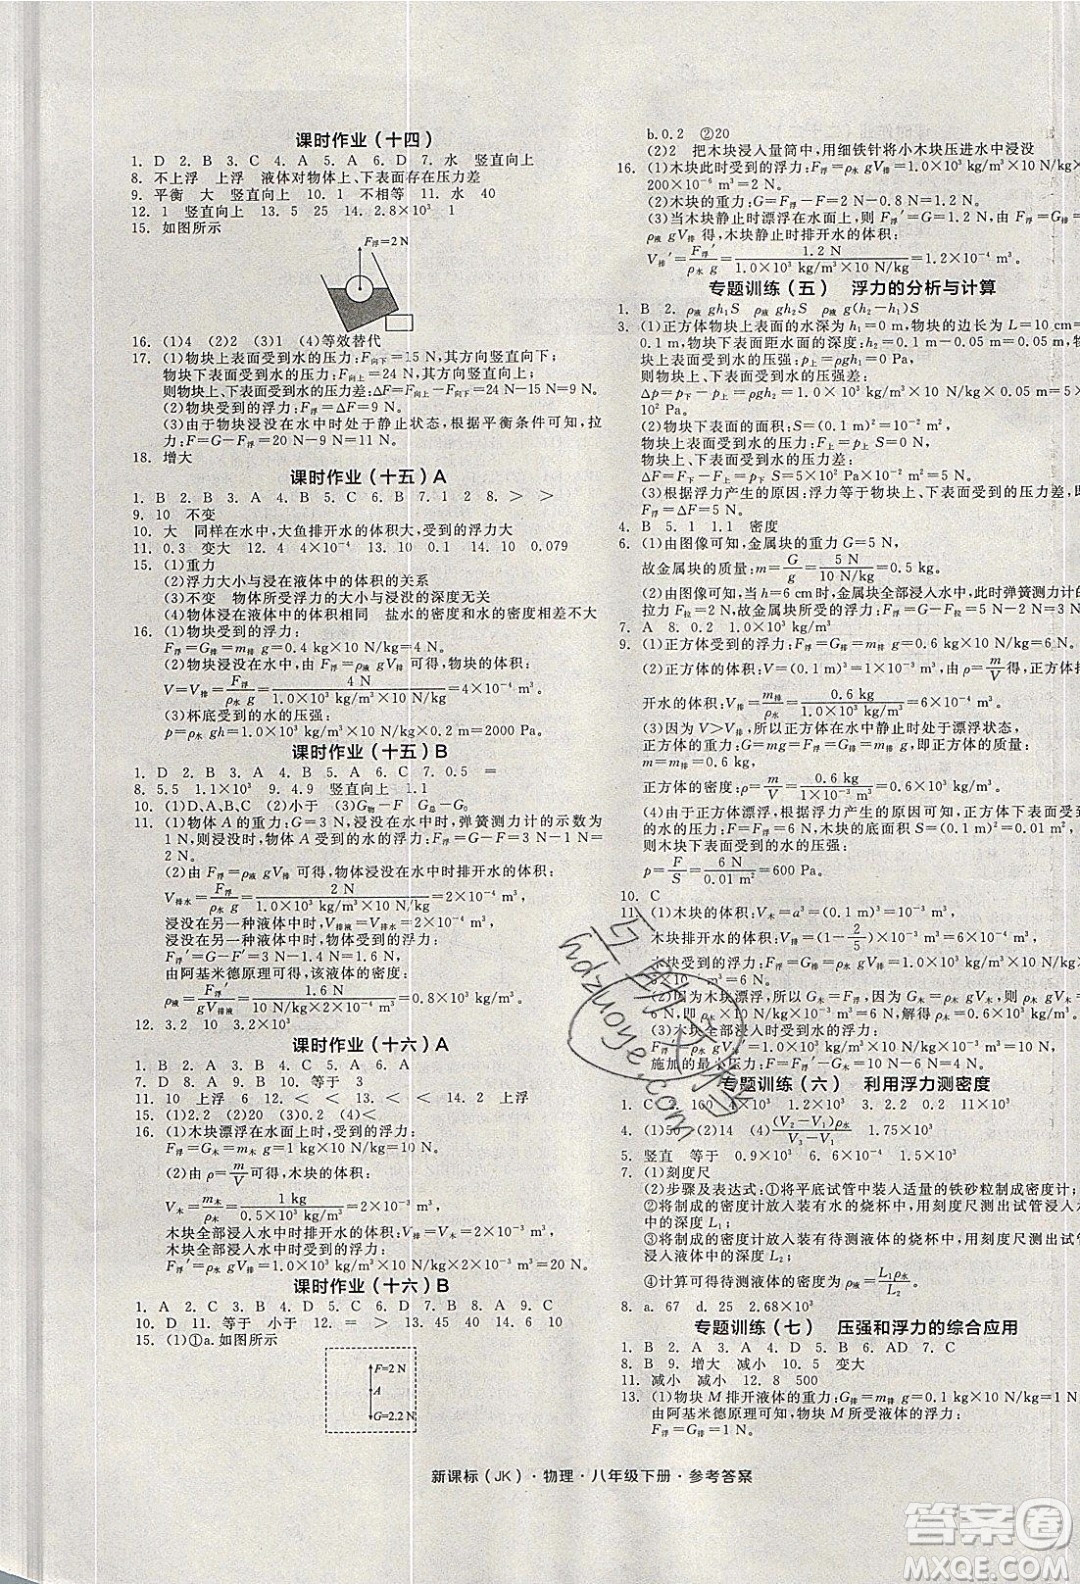 课时作业（十四）
1. D　2. B　3. C　4. A　5. A　6. D　7. 水　竖直向上
8. 不上浮　上浮　液体对物体上、下表面存在压力差
9. 平衡　大　竖直向上　10. 1　不相等　11. 水　40
12. 1　竖直向上　13. 5　25　14. 2.8×10³　1
15. 如图所示
F浮=2 N
16. (1)4　(2)2　(3)1　(4)等效替代
17. (1)物块上表面受到水的压力:F向下=15 N,其方向竖直向下;
物块下表面受到水的压力:F向上=24 N,其方向竖直向上;
则物块上、下表面受到水的压力差:ΔF=F向上-F向下=24 N-15 N=9 N。
(2)物块受到的浮力:F浮=ΔF=9 N。
(3)由于物块浸没在水中时处于静止状态,根据平衡条件可知,拉
力:F=G-F浮=20 N-9 N=11 N。
18. 增大
课时作业（十五）A
1. B　2. B　3. A　4. B　5. C　6. B　7. 1　2　8. >　>
9. 10　不变
10. 大　同样在水中,大鱼排开水的体积大,受到的浮力大
11. 0.3　变大　12. 4　4×10⁻⁴　13. 等于　14. 10　0.079
15. (1)重力
(2)浮力大小与浸在液体中的体积的关系
(3)不变　物体所受的浮力大小与浸没的深度无关
(4)物体浸在液体中的体积相同　盐水的密度和水的密度相差不大
16. (1)物块受到的浮力:
F浮=G排=m排g=0.4 kg×10 N/kg=4 N。
(2)物块浸没在水中时,由F浮=ρ液gV排可得,物块的体积:
V=V排=F浮/ρ水g=4 N/1.0×10³ kg/m³×10 N/kg=4×10⁻⁴ m³。
(3)杯底受到的水的压强:
p=ρ水gh=1.0×10³ kg/m³×10 N/kg×0.2 m=2000 Pa。
课时作业（十五）B
1. D　2. B　3. A　4. B　5. A　6. C　7. 0.5　=
8. 5.5　1.1×10³　9. 4.9　竖直向上　1.1
10. (1)D、A、B、C　(2)小于　(3)G物-F　G总-G₀
11. (1)物体A的重力:G=3 N,浸没在水中时,弹簧测力计的示数为
1 N,则浸没在水中时,物体A受到的水的浮力:F浮=G-F=3 N-1 N=
2 N。
(2)由F浮=ρ液gV排可得,物体浸没在水中时排开水的体积:
V排水=F浮/ρ水g=2 N/1.0×10³ kg/m³×10 N/kg=2×10⁻⁴ m³,
浸没在另一种液体中时,V排液=V排水=2×10⁻⁴ m³,
浸没在另一种液体中时,物体A受到的浮力:
F浮′=G-F′=3 N-1.4 N=1.6 N,
由阿基米德原理可得,该液体的密度:
ρ液=F浮′/gV排液=1.6 N/10 N/kg×2×10⁻⁴ m³=0.8×10³ kg/m³。
12. 3.2　10　3.2×10³
课时作业（十六）A
1. B　2. A　3. D　4. C　5. C　6. B
7. D　8. D　9. A　10. 等于　3
11. 10　上浮　6　12. <　<　13. <　<　14. 2　上浮
15. (1)2.2　(2)20　(3)0.2　(4)<
16. (1)木块漂浮在水面上时,受到的浮力:
F浮=G木=m木g=1 kg×10 N/kg=10 N。
(2)由ρ=m/V可得,木块的体积:
V木=m木/ρ木=1 kg/0.5×10³ kg/m³=2×10⁻³ m³,
木块全部浸入水中时排开水的体积:V排=V木=2×10⁻³ m³,
木块全部浸入水中时受到的浮力:
F浮=ρ水gV排=1.0×10³ kg/m³×10 N/kg×2×10⁻³ m³=20 N。
课时作业（十六）B
1. A　2. D　3. B　4. D　5. D　6. C　7. B　8. A　9. C
10. D　11. 等于　小于　12. =　>　13. 45　40　14. 4
15. (1)①a. 如图所示
F=2 N
A
G=2.2 N
b. 0.2　②20
(2)2　把木块浸入量筒中,用细铁针将小木块压进水中浸没
16. (1)木块此时受到的浮力:F浮=ρ水gV排=1.0×10³ kg/m³×10 N/kg×
200×10⁻⁶ m³=2 N。
(2)木块的重力:G=F浮-F=2 N-0.8 N=1.2 N。
(3)当木块静止时漂浮在水面上,则F浮′=G=1.2 N,由
ρ液gV排得,木块静止时排开水的体积:
V排′=F浮′/ρ水g=1.2 N/1.0×10³ kg/m³×10 N/kg=1.2×10⁻⁴ m³。
专题训练（五）　浮力的分析与计算
1. B　2. ρ液gh₁S　ρ液gh₂S　ρ液g(h₂-h₁)S
3. (1)正方体物块上表面的水深为h₁=0 m,物块的边长为L=10 cm=
0.1 m,物块下表面距水面的深度:
则物块上表面受到水的压强:p上=ρgh₁=0 Pa。
则物块上、下表面受到水的压强差:
10² Pa。
(2)物块下表面的面积:S=(0.1 m)²=0.01 m²,
物块上、下表面受到水的压力差:
(3)根据浮力产生的原因:浮力等于物块上、下表面受到水的压力差,即
4. B　5. 1　1.1　密度
6. (1)由图像可知,金属块的重力G=5 N,
故金属块的质量:m=G/g=5 N/10 N/kg=0.5 kg。
(2)由图像可知,当h=6 cm时,金属块全部浸入水中,此时弹簧测力计
拉力F拉=2 N,故金属块受到的浮力:F浮=G-F拉=5 N-2 N=3 N。
7. A　8. 0.2　1.0×10³
9. (1)正方体受到的浮力:F浮=G排=m排g=0.6 kg×10 N/kg=6 N。
(2)正方体的体积:V=(0.1 m)³=1×10⁻³ m³,由ρ=m/V得,正方体排
开水的体积:V排=m排/ρ水=0.6 kg/1.0×10³ kg/m³
(3)因为V>V排,所以正方体在水中静止时处于漂浮状态,
正方体的重力:G=mg=F浮=G排=m排g,即正方体的质量:
正方体的密度:ρ=m/V=0.6 kg/1×10⁻³ m³=0.6×10³ kg/m³。
(4)由于正方体漂浮,根据浮力产生的原因可知,正方体下表面受到
的水的压力:F=F浮=6 N,木块的底面积S=(0.1 m)²=0.01 m²,
则木块下表面受到水的压强:
p=F/S=6 N/0.01 m²=600 Pa。
10. C
11. (1)木块的体积:V木=a³=(0.1 m)³=1×10⁻³ m³,
木块排开水的体积:V排=(1-2/5)V木=3/5×1×10⁻³ m³=6×10⁻⁴ m³,
木块受到的浮力:
(2)因为木块漂浮,所以G木=F浮=6 N,
(3)木块全部浸入时受到水的浮力:
F浮′=ρ水gV木=1.0×10³ kg/m³×10 N/kg×1×10⁻³ m³=10 N,
施加的最小压力:F=F浮′-G木=10 N-6 N=4 N。
专题训练（六）　利用浮力测密度
1. C　2. 160　4×10³　1.2×10³　3. 2.2　0.2　11×10³
4. (1)50　(2)14　(4)(V₂-V₁)ρ水/V₃-V₁　1.75×10³
5. 竖直　等于　0.9×10³　6. 6×10⁻⁴　1.2×10³
7. (1)刻度尺
(2)步骤及表达式:①将平底试管中装入适量的铁砂粒制成密度计;
②将制成的密度计放入装有水的烧杯中,用刻度尺测出试管浸入水
中的深度L₁;
③将制成的密度计放入装有待测液体的烧杯中,用刻度尺测出试管
浸入液体中的深度L₂;
④计算可得待测液体的密度为ρ液=L₁ρ水/L₂
8. a. 67　d. 25　2.68×10³
专题训练（七）　压强和浮力的综合应用
1. B　2. A　3. A　4. B　5. B　6. AD　7. C
8. B　9. 增大　减小　10. 5　变大
11. 减小　减小　12. 8　500
13. (1)物块M排开液体的重力:G排=m排g=0.1 kg×10 N/kg=1 N,
由阿基米德原理可知,物块M受到液体的浮力:
F浮=G排=1 N。
新课标（JK）·物理·八年级下册·参考答案
与你文档
hdzuoye.com
答案圈
MXQE.COM